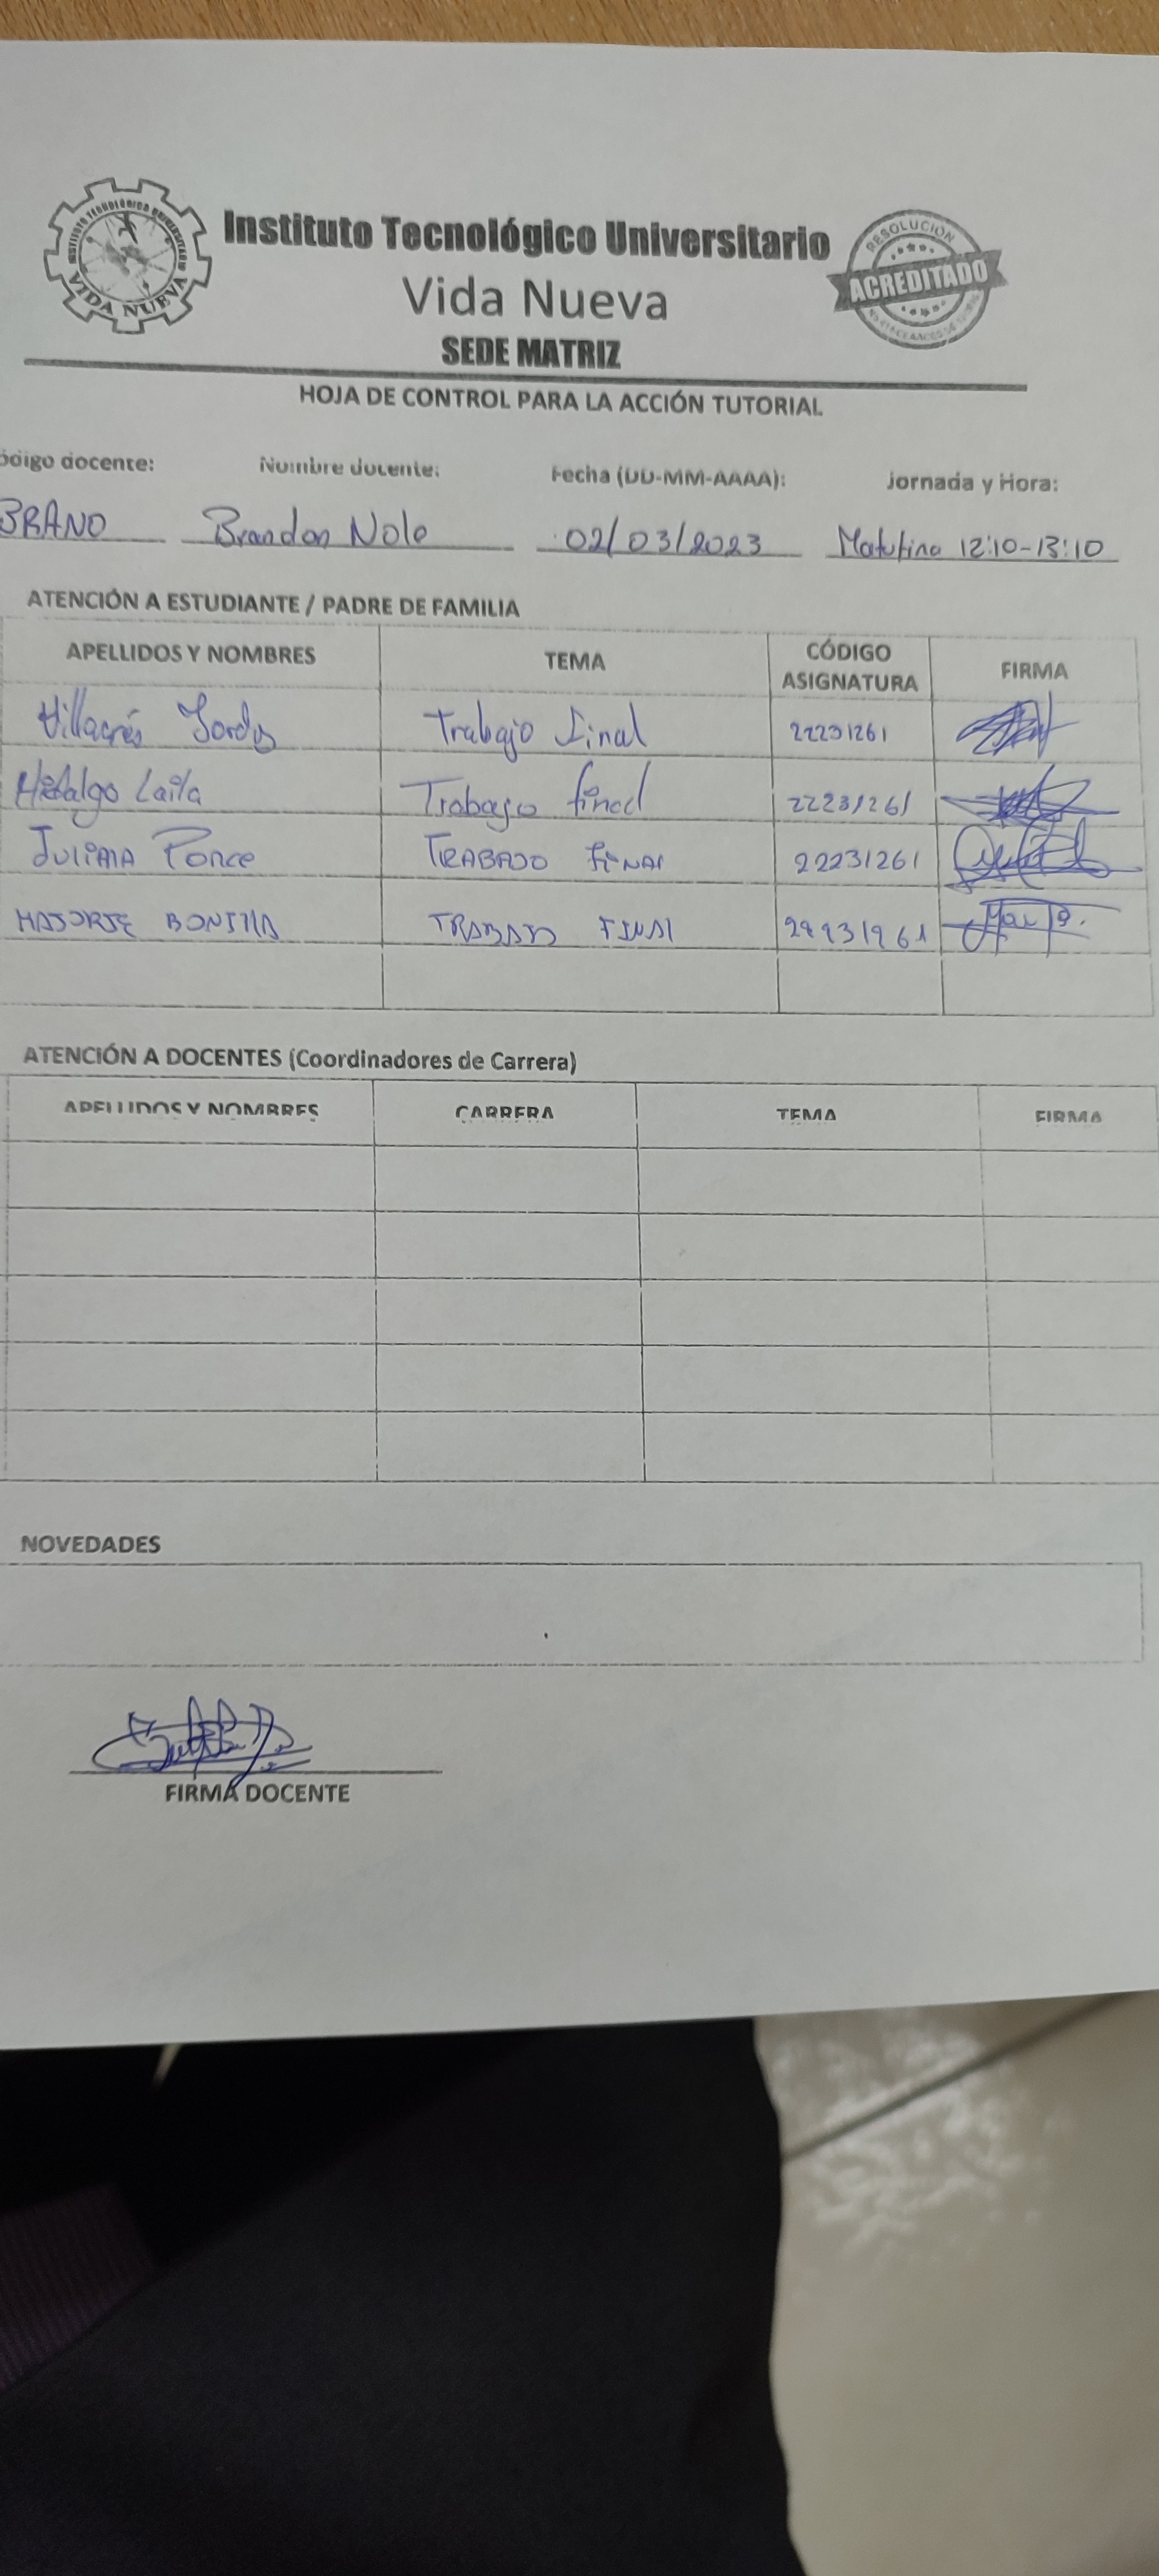 INSTITUTO TECNOLÓGICO UNIVERSITARIO
VIDA NUEVA
Instituto Tecnológico Universitario
Vida Nueva
SEDE MATRIZ
RESOLUCIÓN
ACREDITADO
HOJA DE CONTROL PARA LA ACCIÓN TUTORIAL
ódigo docente: Nombre docente: Fecha (DD-MM-AAAA): Jornada y Hora:
BRANO Brandon Nole 02/03/2023 Matutina 12:10-13:10
ATENCIÓN A ESTUDIANTE / PADRE DE FAMILIA
APELLIDOS Y NOMBRES TEMA CÓDIGO ASIGNATURA FIRMA
Villacrés Jordy Trabajo Final 22231261
Hidalgo Laila Trabajo final 22231261
Juliana Ponce TRABAJO FINAL 22231261
MAJORIE BONILLA TRABAJO FINAL 22231261
ATENCIÓN A DOCENTES (Coordinadores de Carrera)
APELLIDOS Y NOMBRES CARRERA TEMA FIRMA
NOVEDADES
FIRMA DOCENTE